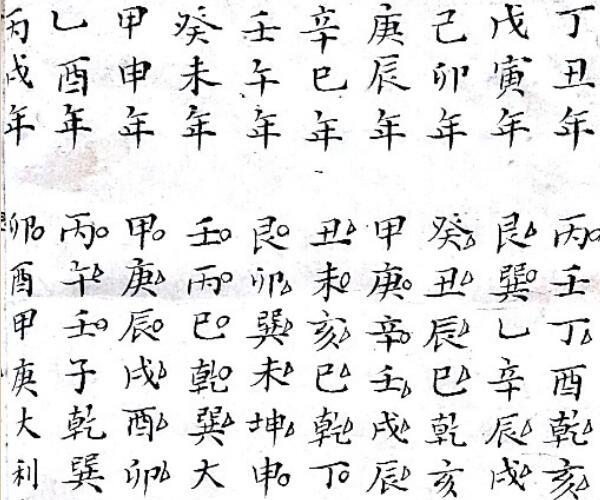 丁丑年 丙壬丁酉乾亥
戊寅年 艮巽乙辛辰戌
己卯年 癸丑辰巳乾亥
庚辰年 甲庚辛壬戌辰
辛巳年 丑未亥巳乾丁
壬午年 艮卯巽未坤申
癸未年 壬丙巳乾巽大
甲申年 甲庚辰戌酉卯
乙酉年 丙午壬子乾巽
丙戌年 卯酉甲庚大利